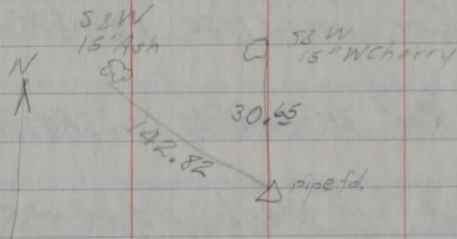 S&W
15" Ash
S&W
15" WCherry
N
30.65
142.82
pipe fd.